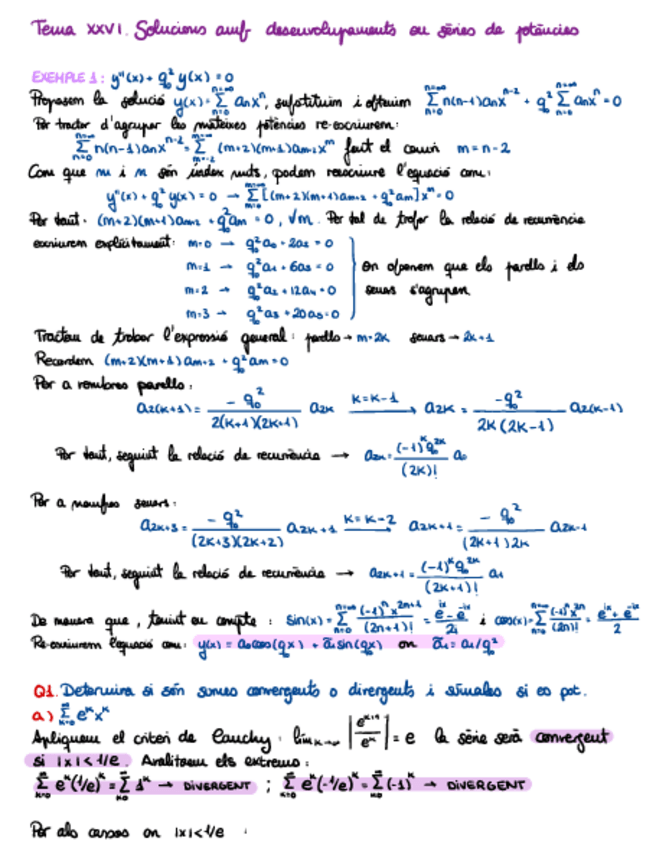 Tema XXVI. Solucions amb desenvolupaments en sèries de potències
EXEMPLE 1: y''(x) + q₀² y(x) = 0
Proposem la solució y(x) = Σ_{n=0}^{n=∞} aₙxⁿ, substituim i obtenim Σ_{n=0}^{n=∞} n(n-1)aₙxⁿ⁻² + q₀² Σ_{n=0}^{n=∞} aₙxⁿ = 0
Per tractar d'agrupar les mateixes potències re-escriurem:
Σ_{n=0}^{n=∞} n(n-1)aₙxⁿ⁻² = Σ_{m=-2}^{m=∞} (m+2)(m+1)aₘ₊₂xᵐ fent el canvi m = n-2
Com que m i n són índex muts, podem reescriure l'equació com:
y''(x) + q₀² y(x) = 0 → Σ_{m=0}^{m=∞} [(m+2)(m+1)aₘ₊₂ + q₀²aₘ]xᵐ = 0
Per tant: (m+2)(m+1)aₘ₊₂ + q₀²aₘ = 0, ∀m. Per tal de trobar la relació de recurrència
escriurem explícitament: m=0 → q₀²a₀ + 2a₂ = 0
m=1 → q₀²a₁ + 6a₃ = 0
On observem que els parells i els
m=2 → q₀²a₂ + 12a₄ = 0
senars s'agrupen
m=3 → q₀²a₃ + 20a₅ = 0
Tractem de trobar l'expressió general: parells → m=2k senars → 2k+1
Recordem (m+2)(m+1)aₘ₊₂ + q₀²aₘ = 0
Per a nombres parells:
a₂₍ₖ₊₁₎ = -q₀² / 2(k+1)(2k+1) a₂ₖ k=k-1 → a₂ₖ = -q₀² / 2k(2k-1) a₂₍ₖ₋₁₎
Per tant, seguint la relació de recurrència → a₂ₖ = (-1)ᵏq₀²ᵏ / (2k)! a₀
Per a nombres senars:
a₂ₖ₊₃ = -q₀² / (2k+3)(2k+2) a₂ₖ₊₁ k=k-2 → a₂ₖ₊₁ = -q₀² / (2k+1)2k a₂ₖ₋₁
Per tant, seguint la relació de recurrència → a₂ₖ₊₁ = (-1)ᵏq₀²ᵏ / (2k+1)! a₁
De manera que, tenint en compte: sin(x) = Σ_{n=0}^{n=∞} (-1)ⁿx²ⁿ⁺¹ / (2n+1)! = eⁱˣ - e⁻ⁱˣ / 2i i cos(x) = Σ_{n=0}^{n=∞} (-1)ⁿx²ⁿ / (2n)! = eⁱˣ + e⁻ⁱˣ / 2
Re-escriurem l'equació com: y(x) = a₀cos(qx) + ã₁sin(q₀x) on ã₁ = a₁/q²
Q1. Determina si són sumes convergents o divergents i sumales si es pot.
a) Σ_{k=0}^{∞} eᵏxᵏ
Apliquem el criteri de Cauchy: lim_{k→∞} |eᵏ⁺¹ / eᵏ| = e la sèrie serà convergent
si |x| < 1/e. Analitzem els extrems:
Σ_{k=0}^{∞} eᵏ(1/e)ᵏ = Σ_{k=0}^{∞} 1ᵏ → DIVERGENT ; Σ_{k=0}^{∞} eᵏ(-1/e)ᵏ = Σ_{k=0}^{∞} (-1)ᵏ → DIVERGENT
Per als cassos on |x| < 1/e :